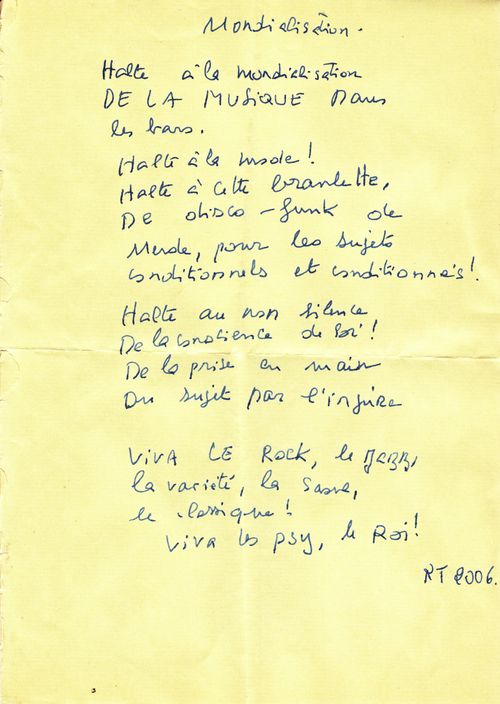 Mondialisation.
Halte à la mondialisation
DE LA MUSIQUE Dans
les bars.
Halte à la mode!
Halte à cette branlette,
DE disco-funk de
Merde, pour les sujets
conditionnels et conditionnés!
Halte au non silence
De la conscience de soi!
De la prise en main
Du sujet par
VIVA LE Rock, le JAZZ,
la variété, la
le classique!
VIVA les psy, le Roi!
RT 2006.